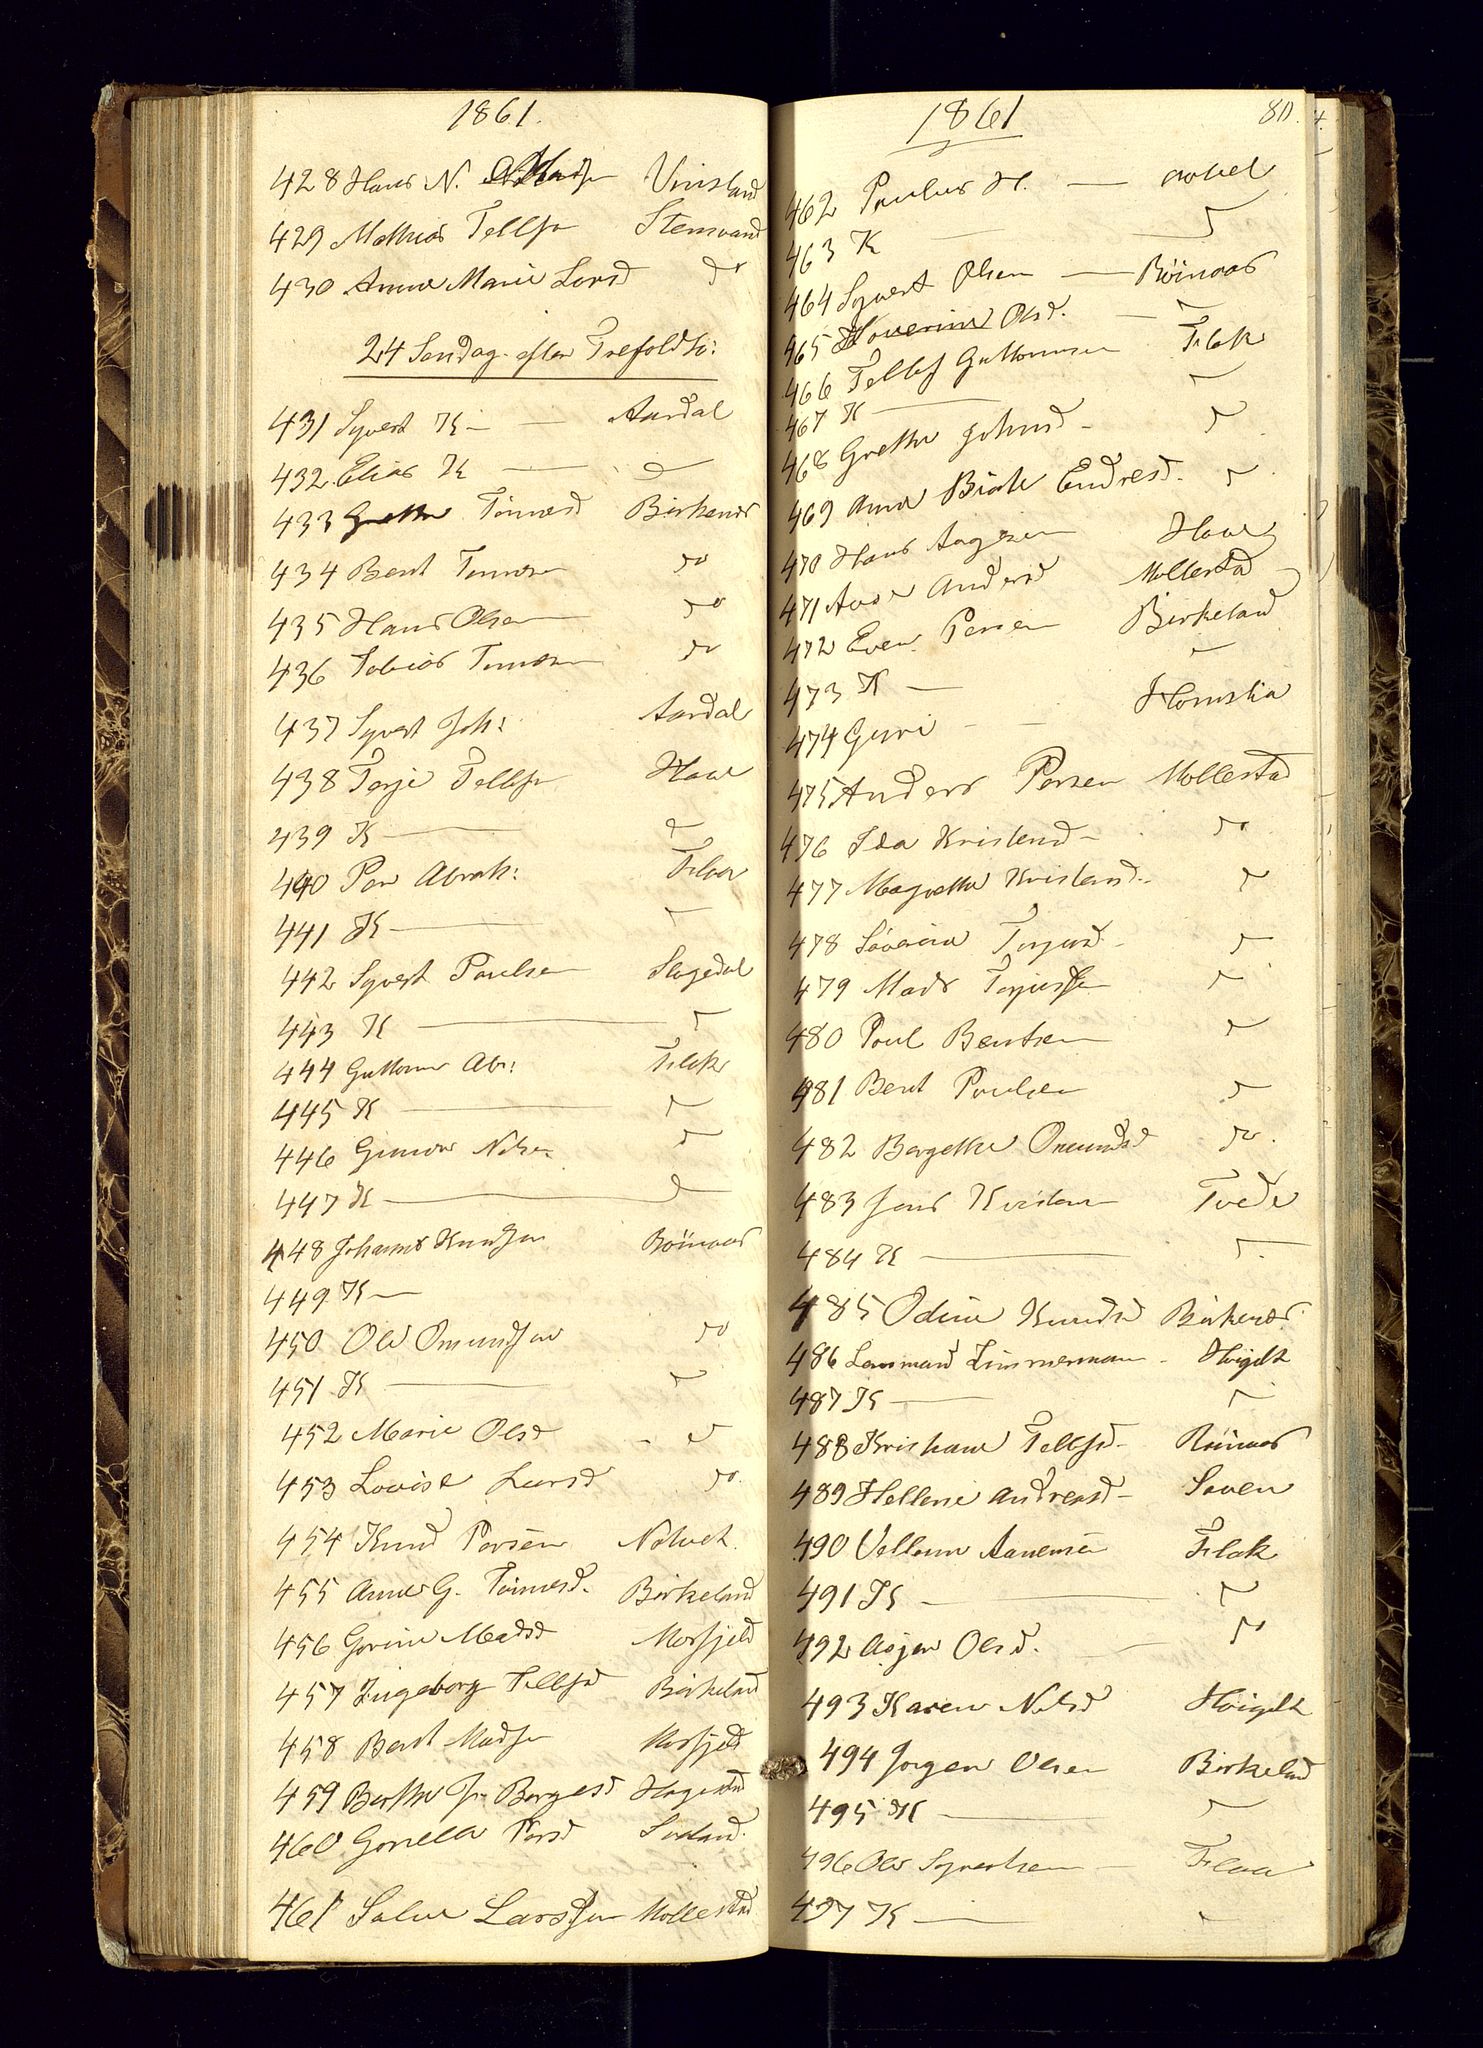 1861.
428 Hans N. Vinsland
429 Mathias Tellfsn Stensvand
430 Anne Marie Larsd do
24 Søndag efter Trefoldh:
431 Syvert K — Aardal
432 Elias K — d
433 Grethe Tønnesd Birkenes
434 Bent Tønnesn do
435 Hans Olsen do
436 Tobias Tønnesn do
437 Syvert Joh: Aardal
438 Terje Tellfsn Haae
439 K — d
440 Per Abrah: Flaa
441 K —
442 Syvert Poulsen Slagedal
443 K —
444 Guttorm Abr: Flak
445 K —
446 Gunner Nilsen
447 K — d
448 Johannes Knudsen Röinaas
449 K —
450 Ole Omundsen do
451 K —
452 Marie Olsd d
453 Lovise Larsd do
454 Knud Persen
455 Anne G. Tönnesd. Birkeland
456 Gorine Madsd Mosfjeld
457 Ingeborg Tellfsd Birkeland
458 Bent Madsn Mosfjeld
459 Berthe Borgesd Hagestad
460 Gunella Persd
461 Salve Larssen Mollestad
1861 80.
462 Poulus H. —
463 K —
464 Syvert Olsen — Röinaas
465 Olsd. —
466 Tellef Guttormsen Flak
467 K —
468 Grethe Johnsd -
469 Anne Birte Endresd.
470 Hans Aagesen Haae
471 Anne Andersd Mollestad
472 Even Persen Birkeland
473 K —
474 Guri — Homslia
475 Anders Persen Mollestad
476 Ida Kristensd - do
477 Magrethe Kristensd -
478 Severine Terjesd -
479 Mads Terjessen
480 Poul Bentsen
481 Bent Poulsen
482 Bergethe Omundsd do.
483 Jens Kristen Tvede
484 K —
485 Odine Knudsd Birkenes
486 Lensmand Zimmermann - Höigilt
487 K —
488 Kristiane Tellfsd - Röinaas
489 Hellene Andreasd - Saven
490 Vellom Aanensen Flak
491 K —
492 Asjer Olsd. — do
493 Karen Nilsd Höigilt
494 Jørgen Olsen Birkeland
495 K —
496 Ole Syvertsen — Flaa
497 K —